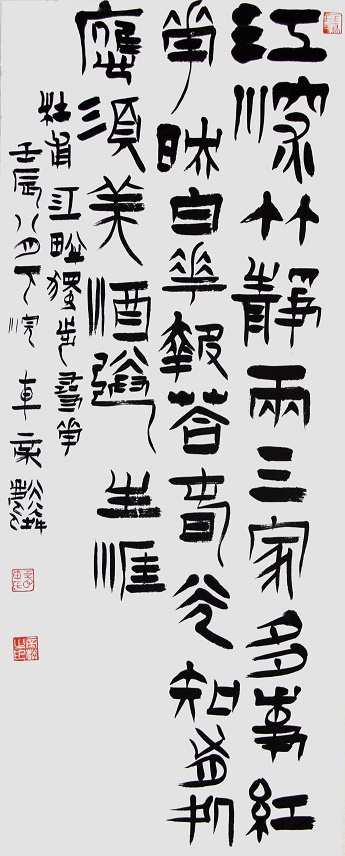 江深竹靜兩三家多事紅
華映白華報荅春光知有処
應須美酒送生涯
杜甫江畔獨步尋華
壬辰八四下浣車